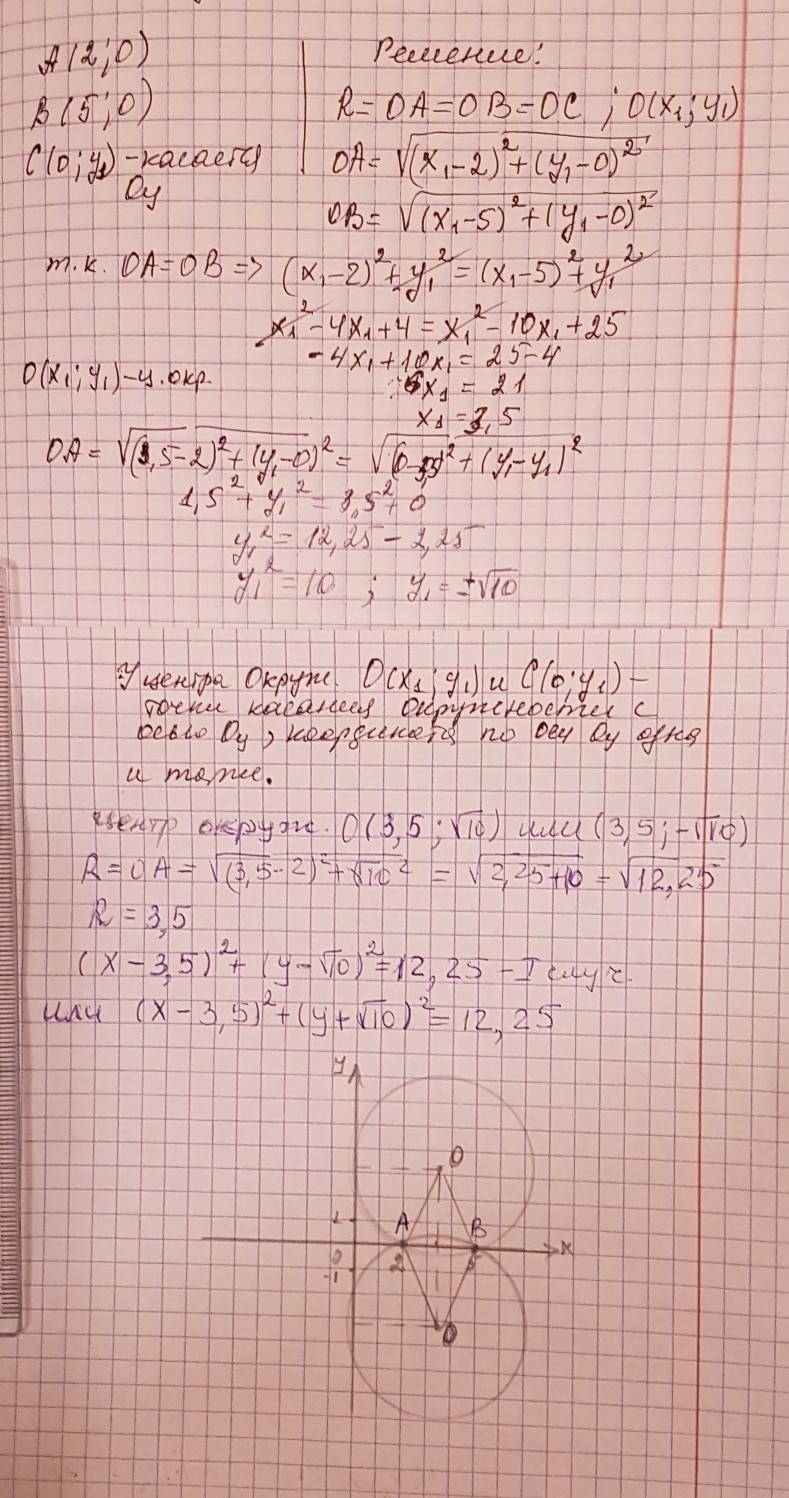 A(2;0)
B(5;0)
C(0;y₁) - касается
Oy
Решение:
R = OA = OB = OC ; O(x₁; y₁)
OA = √((x₁-2)² + (y₁-0)²)
OB = √((x₁-5)² + (y₁-0)²)
т.к. OA = OB => (x₁-2)² + y₁² = (x₁-5)² + y₁²
x₁² - 4x₁ + 4 = x₁² - 10x₁ + 25
-4x₁ + 10x₁ = 25 - 4
O(x₁; y₁) - ц. окр.
6x₁ = 21
x₁ = 3,5
OA = √((3,5-2)² + (y₁-0)²) = √((0-3,5)² + (y₁-y₁)²)
1,5² + y₁² = 3,5² + 0
y₁² = 12,25 - 2,25
y₁² = 10 ; y₁ = ±√10
У центра Окруж. O(x₁; y₁) и C(0; y₁) -
точки касания окружности с
осью Oy, координата по оси Oy одна
и таже.
Центр окруж. O(3,5; √10) или (3,5; -√10)
R = OA = √((3,5-2)² + √10²) = √(2,25+10) = √12,25
R = 3,5
(x - 3,5)² + (y - √10)² = 12,25 - I случ.
или (x - 3,5)² + (y + √10)² = 12,25
y
O
1
A
B
x
0
2
5
-1
O